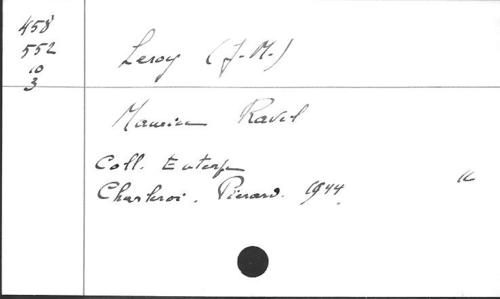 458
552
10
3
Leroy (J.-M.)
Maurice Ravel
Coll. Euterpe
Charleroi. Pierard. 1944.